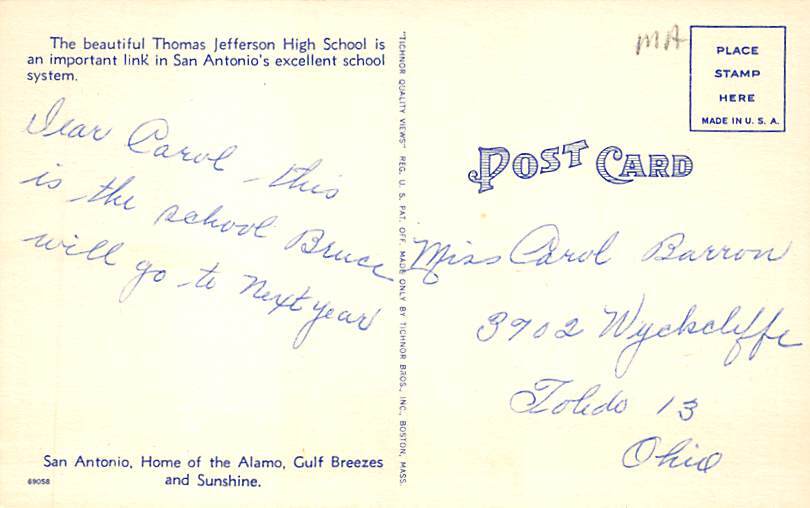 The beautiful Thomas Jefferson High School is
an important link in San Antonio's excellent school
system.
Dear Carol this
is the school Bruce
will go to next year
San Antonio, Home of the Alamo, Gulf Breezes
and Sunshine.
69058
"TICHNOR QUALITY VIEWS" REG. U. S. PAT. OFF. MADE ONLY BY TICHNOR BROS., INC., BOSTON, MASS.
MA
PLACE
STAMP
HERE
MADE IN U. S. A.
POST CARD
Miss Carol Barron
3902 Wyckcliffe
Toledo 13
Ohio